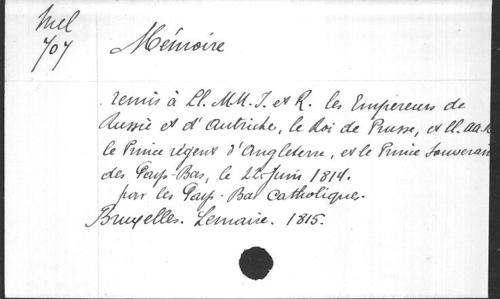 Mel
707
Mémoire
remis à Ll. M.M. I. et R. les Empereurs de
Russie et d'Autriche, le Roi de Prusse, et ll. aa. R.
le Prince régent d'Angleterre, et le Prince Souverain
des Pays-Bas, le 22 Juin 1814.
par les Pays-Bas Catholiques.
Bruxelles. Lemaire. 1815.